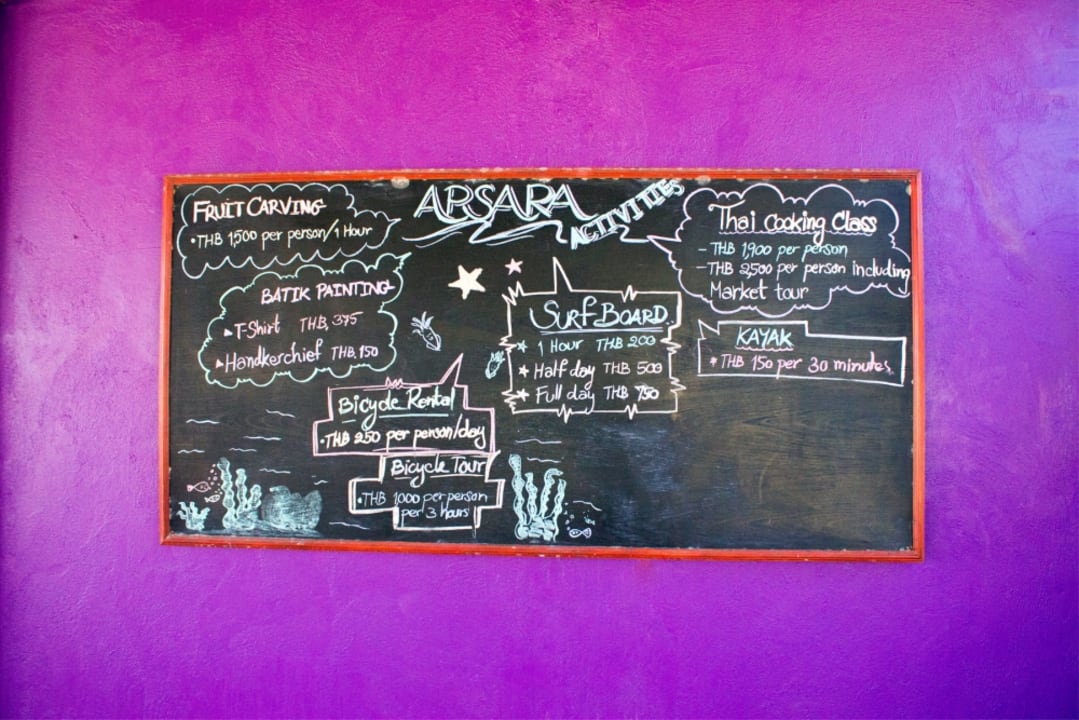 APSARA
ACTIVITIES
FRUIT CARVING
•THB 1,500 per person/1 Hour
BATIK PAINTING
T-Shirt THB, 375
Handkerchief THB, 150
Bicycle Rental
•THB 250 per person/day
Bicycle Tour
•THB 1000 per person
per 3 hours
SURF BOARD
1 Hour THB 200
Half day THB 500
Full day THB 750
Thai Cooking Class
-THB 1,900 per person
-THB 2,500 per person including
Market tour
KAYAK
* THB 150 per 30 minutes.